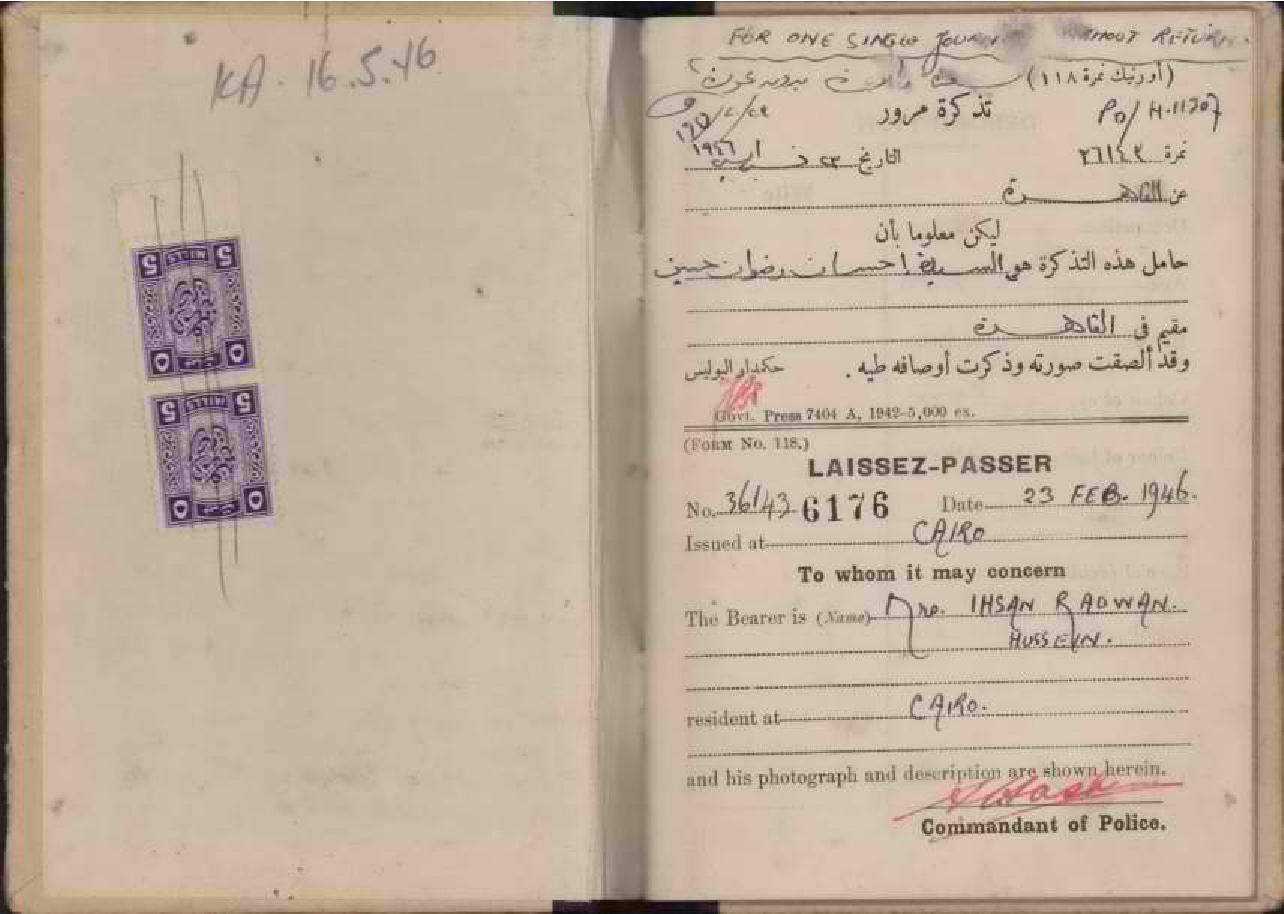 KA. 16.5.46
5 MILLS 5
5 MILLS 5
FOR ONE SINGLE JOURN WITHOUT RETURN.
(أورنيك نمرة ١١٨)
تذكرة مرور PD/H.11307
نمرة ٣٦١٤٣ التاريخ ٢٣ ١٩٤٦
عن القاهرة
ليكن معلوما بأن
حامل هذه التذكرة هي السيدة احسان رضوان حسين
مقيم فى القاهرة
وقد ألصقت صورته وذكرت أوصافه طيه .
حكمدار البوليس
Govt. Press 7404 A, 1942-5,000 ex.
(FORM No. 118.)
LAISSEZ-PASSER
No. 36143 6176 Date 23 FEB. 1946.
Issued at CAIRO
To whom it may concern
The Bearer is (Name) Mrs. IHSAN RADWAN.
HUSSEIN.
resident at CAIRO.
and his photograph and description are shown herein.
Commandant of Police.